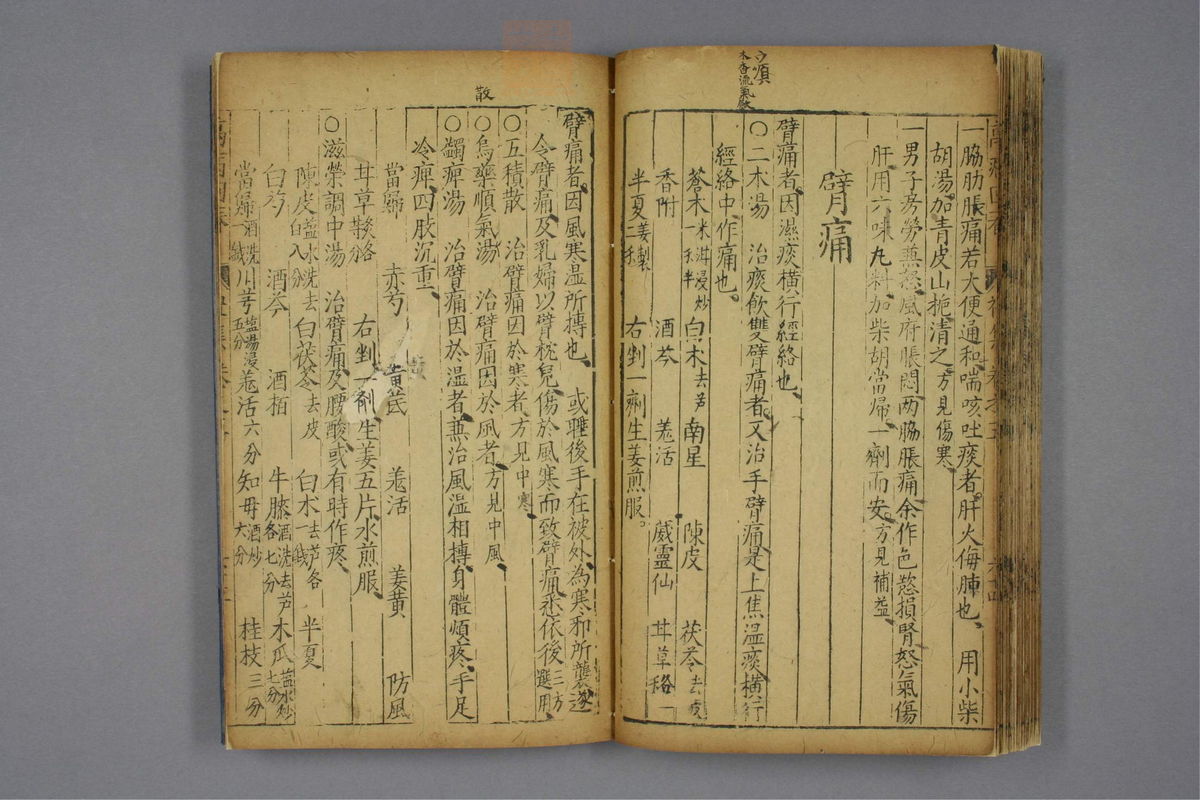 一脇肋脹痛若大便通和喘咳吐痰者肝火侮腫也 用小柴
胡湯加青皮山梔清之方見傷寒
一男子房勞兼怒風府脹悶两脇脹痛余作色慾損腎怒氣傷
肝用六味丸料加柴胡當歸一劑而安方見補益
臂痛
臂痛者因濕痰橫行經絡也
木香流氣飲
○二木湯 治痰飲雙臂痛者又治手臂痛是上焦温痰橫行
經絡中作痛也
蒼木米泔浸炒一錢半 白木去芦 南星 陳皮 茯苓去皮
香附 酒芩 羗活 威靈仙 甘草各一
半夏姜製二錢 右剉一劑生姜煎服
臂痛者因風寒湿所摶也 或睡後手在被外為寒邪所襲遂
令臂痛及乳婦以臂枕兒傷於風寒而致臂痛悉依後三方選用
○五積散 治臂痛因於寒者方見中寒
散
○烏藥順氣湯 治臂痛因於風者方見中風
○蠲痺湯 治臂痛因於湿者兼治風湿相摶身體煩疼手足
冷痺四肢沉重
當歸 赤芍 黃芪 羗活 姜黄 防風
甘草 右剉一劑生姜五片水煎服
○滋榮調中湯 治臂痛及腰酸或有時作疼
陳皮盐水洗去白八分 白茯苓去皮 白木去芦各一錢 半夏
白芍 酒芩 酒栢 牛膝酒洗去芦各七分 木瓜盐水炒七分
當歸酒洗一錢 川芎盐湯浸五分 羗活六分 知母酒炒六分 桂枝三分